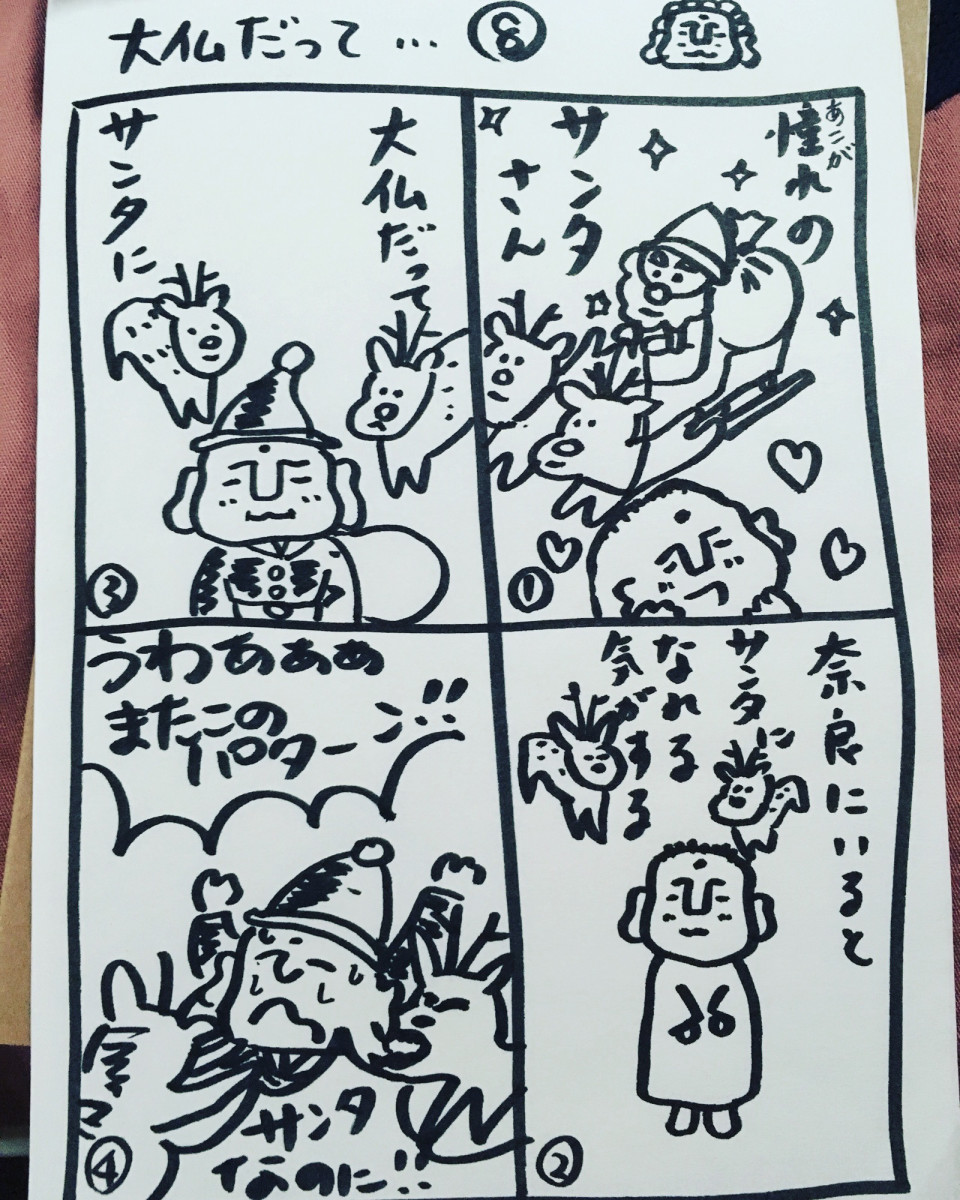 大仏だって… ⑧
憧れの
あこが
サンタ
さん
①
奈良にいると
サンタに
なれる
気がする
②
大仏だって
サンタに
③
うわぁぁぁ
またこの
パターン!!
サンタ
なのに!!
④